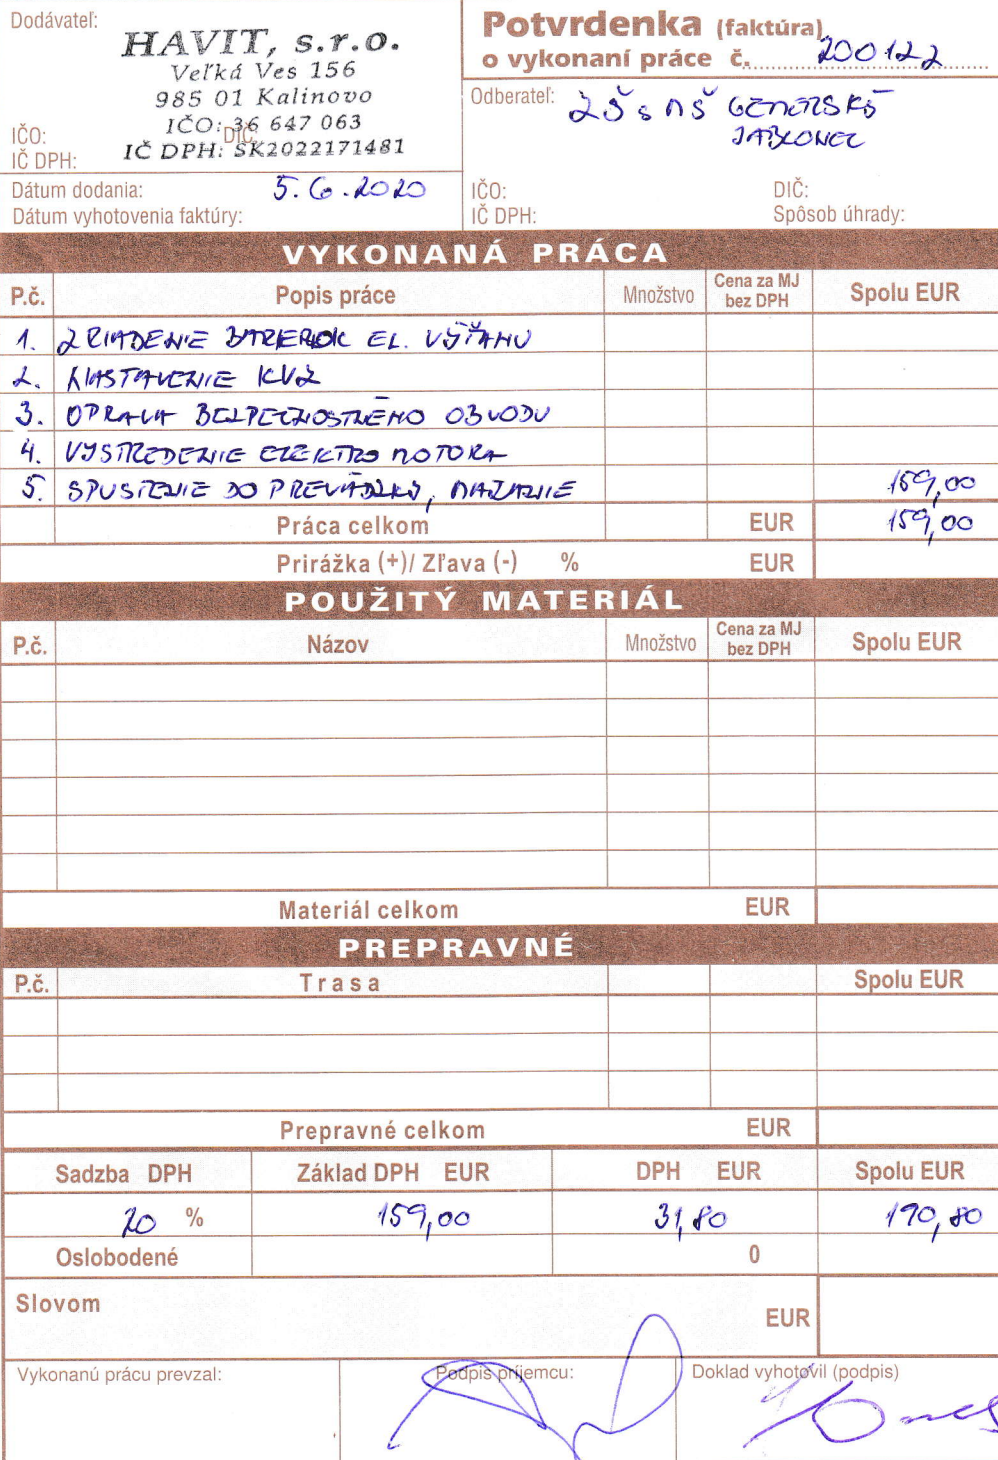 Dodávateľ:
HAVIT, s.r.o.
Veľká Ves 156
985 01 Kalinovo
IČO: 36 647 063
IČ DPH: SK2022171481
IČO: DIČ:
IČ DPH:
Dátum dodania: 5.6.2020
Dátum vyhotovenia faktúry:
Potvrdenka (faktúra)
o vykonaní práce č. 200122
Odberateľ: ZŠ s MŠ GEMERSKÝ
JABLONEC
IČO: DIČ:
IČ DPH: Spôsob úhrady:
VYKONANÁ PRÁCA
P.č. Popis práce Množstvo Cena za MJ bez DPH Spolu EUR
1. ZRIADENIE BARIEROK EL. VÝŤAHU
2. NASTAVENIE KVZ
3. OPRAVA BEZPEČNOSTNÉHO OBVODU
4. VYSTREDENIE ELEKTRO MOTORA
5. SPUSTENIE DO PREVÁDZKY, MAZANIE 159,00
Práca celkom EUR 159,00
Prirážka (+)/ Zľava (-) % EUR
POUŽITÝ MATERIÁL
P.č. Názov Množstvo Cena za MJ bez DPH Spolu EUR
Materiál celkom EUR
PREPRAVNÉ
P.č. Trasa Spolu EUR
Prepravné celkom EUR
Sadzba DPH Základ DPH EUR DPH EUR Spolu EUR
20 % 159,00 31,80 190,80
Oslobodené 0
Slovom EUR
Vykonanú prácu prevzal: Podpis príjemcu: Doklad vyhotovil (podpis)